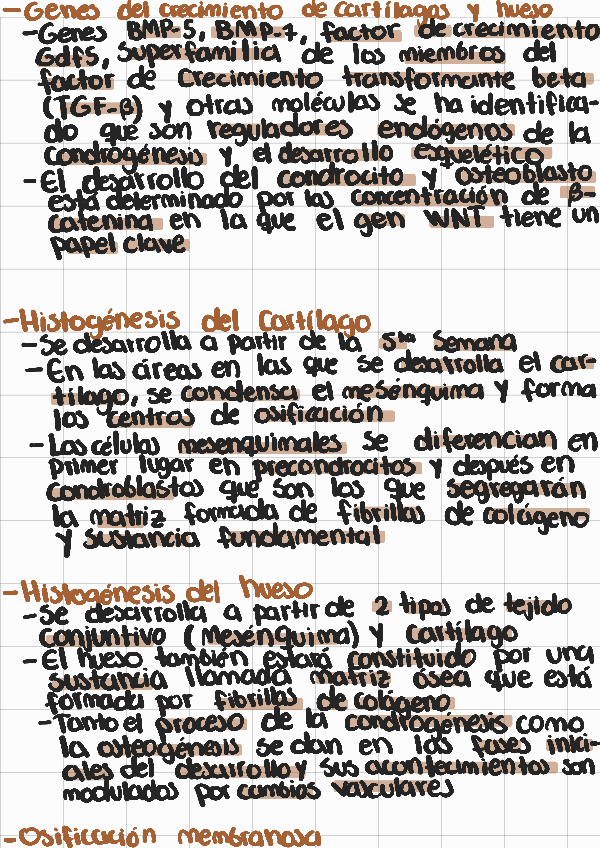 -Genes del crecimiento de cartílagos y hueso
-Genes BMP-5, BMP-7, factor de crecimiento
Gdf5, superfamilia de los miembros del
factor de crecimiento transformante beta
(TGF-β) y otras moléculas se ha identifica-
do que son reguladores endógenos de la
condrogénesis y el desarrollo esquelético
-El desarrollo del condrocito y osteoblasto
está determinado por las concentración de β-
catenina en la que el gen WNT tiene un
papel clave
-Histogénesis del Cartílago
-Se desarrolla a partir de la 5ta Semana
-En las áreas en las que se desarrolla el car-
tílago, se condensa el mesénquima y forma
los centros de osificación
-Las células mesenquimales se diferencian en
primer lugar en precondrocitos y después en
condroblastos que son los que segregarán
la matriz formada de fibrillas de colágeno
y sustancia fundamental
-Histogénesis del hueso
-Se desarrolla a partir de 2 tipos de tejido
conjuntivo (Mesénquima) y cartílago
-El hueso también estará constituido por una
sustancia llamada matriz ósea que está
formada por fibrillas de colágeno
-Tanto el proceso de la condrogénesis como
la osteogénesis se dan en las fases inici-
ales del desarrollo y sus acontecimientos son
modulados por cambios vasculares
-Osificación membranosa